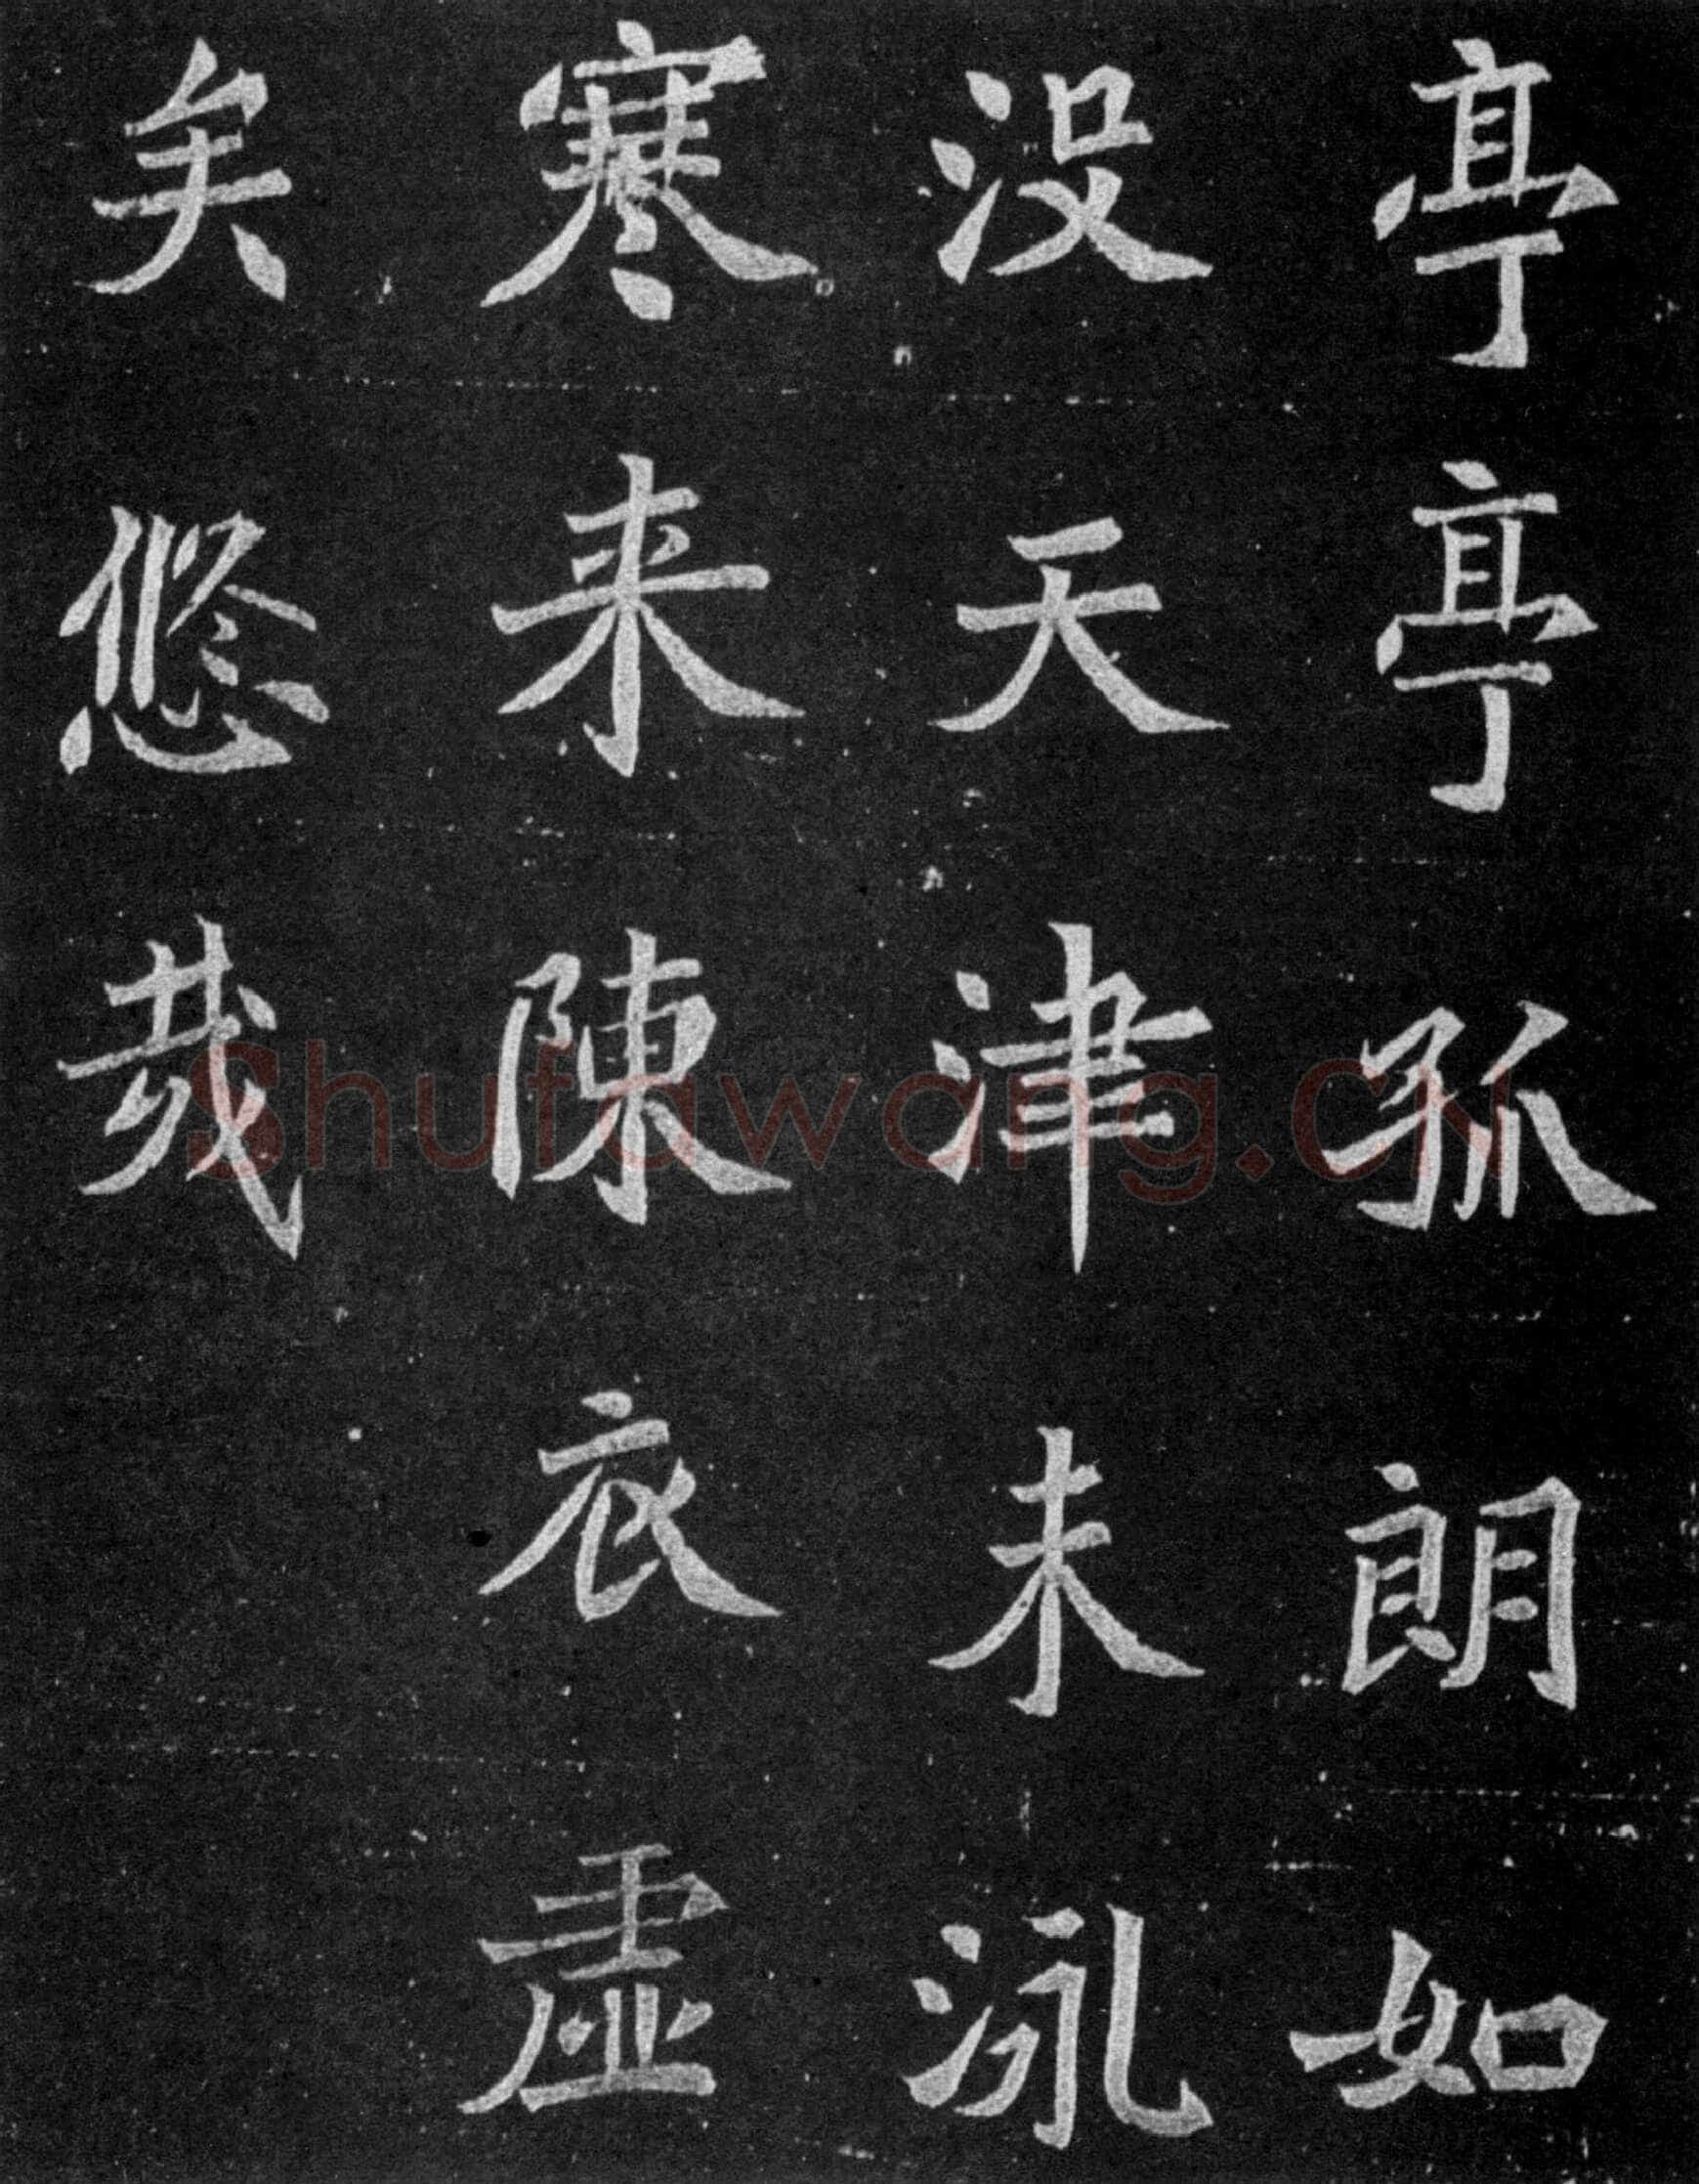 亭亭孤朗如
没天津未
寒来陳衣虚
矣悠哉
Shufawang.CN